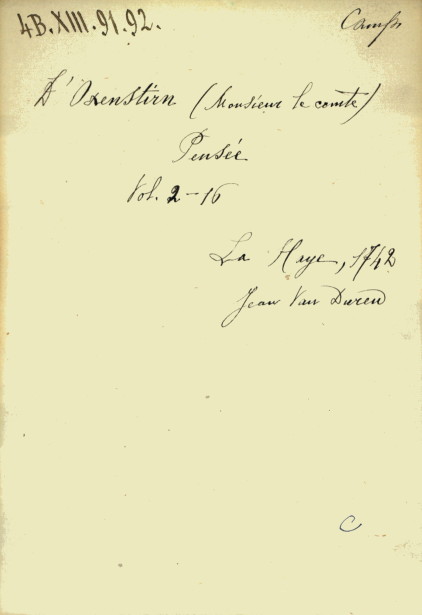 4B.XIII.91.92.
D'Oxenstirn (Monsieur le comte)
Pensée
Vol. 2-16
La Haye, 1742
Jean Van Duren
C